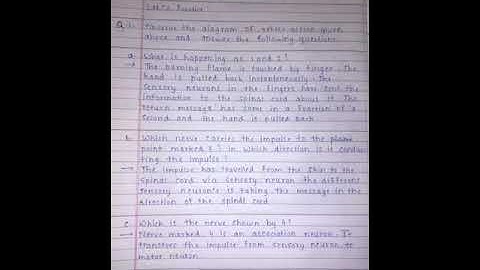 Let's Practice
Q.1. Observe the diagram of reflex action given
above and answer the following questions.
a. What is happening as 1 and 2?
→ The burning flame is touched by finger. The
hand is pulled back instanteneously. The
sensory neurons in the fingers have sent the
information to the spinal cord about it. The
return message has come in a fraction of a
second and the hand is pulled back
b. Which nerve carries the impulse to the
point marked 3? In which direction is it conduc
ting the impulse?
→ The impulse has travelled from the skin to the
spinal cord via sensory neuron the different
sensory neuron's is taking the message in the
direction of the spinal cord
c. Which is the nerve shown by 4?
→ Nerve marked 4 is an association neuron. It
transfers the impulse from sensory neuron to
motor neuron